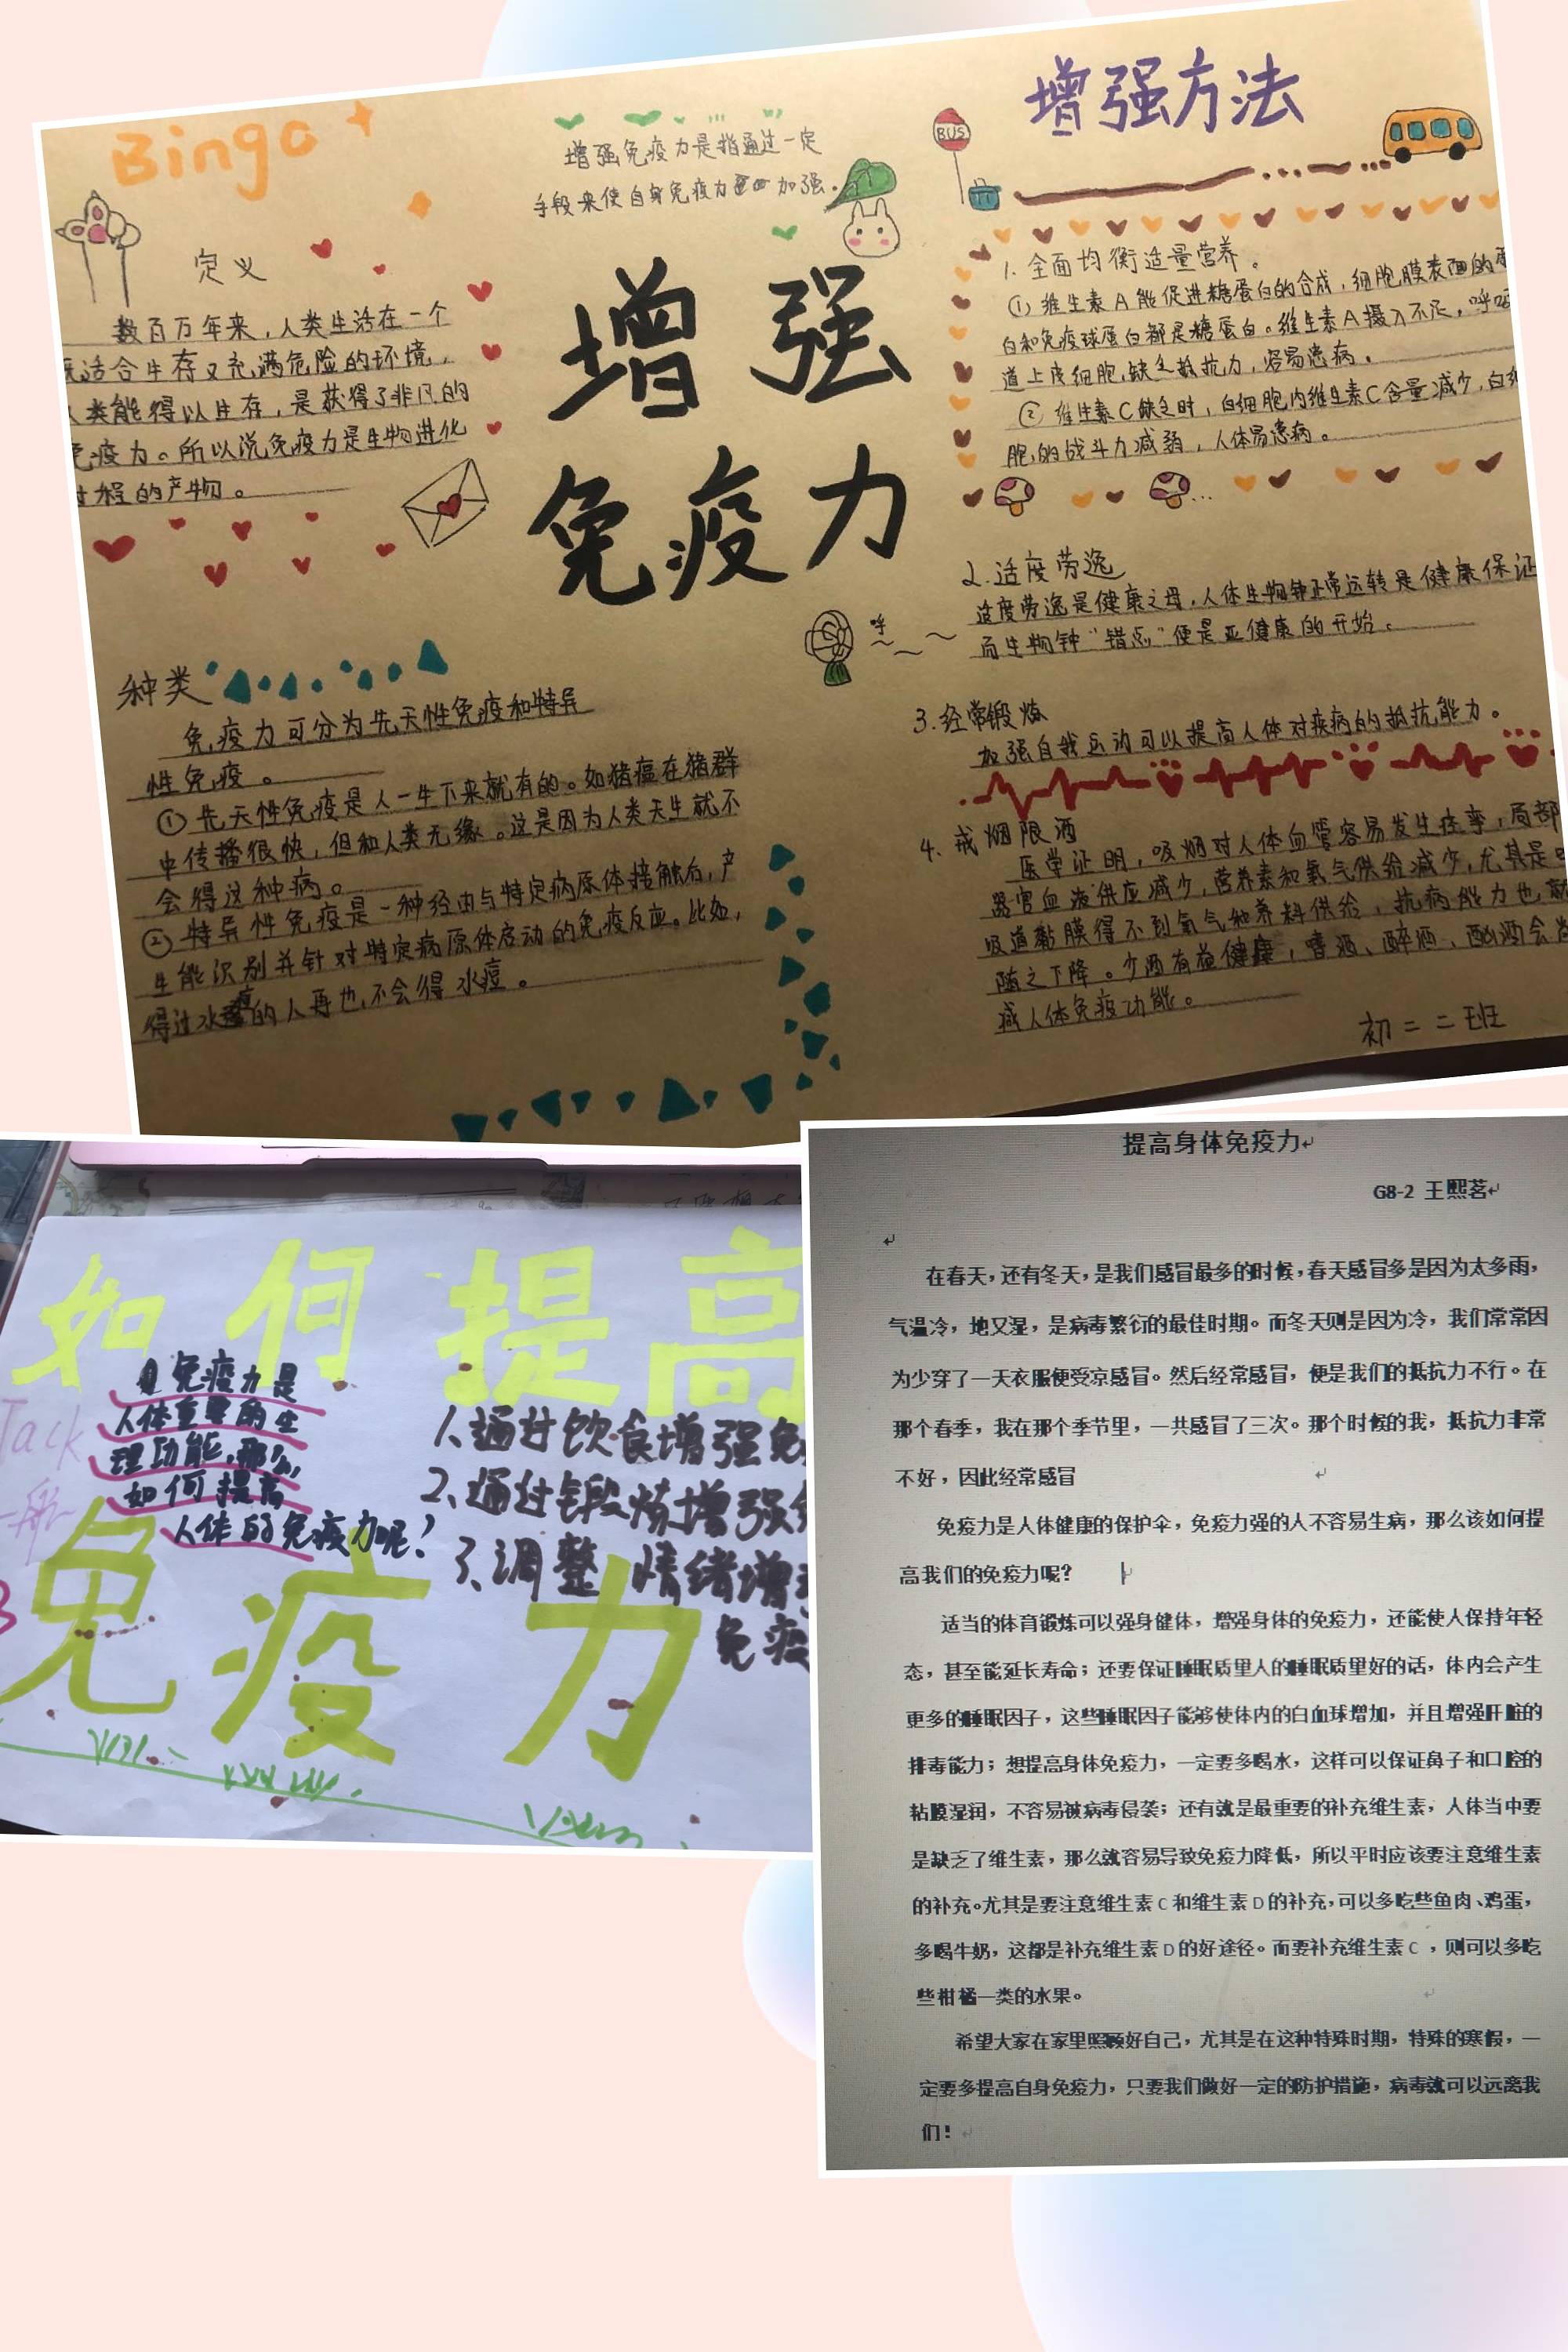 Bingo
定义
数百万年来,人类生活在一个
既适合生存又充满危险的环境,
人类能得以生存,是获得了非凡的
免疫力。所以说免疫力是生物进化
过程的产物。
增强免疫力是指通过一定
手段来使自身免疫力 加强。
增强
免疫力
呼
种类
免疫力可分为先天性免疫和特异
性免疫。
①先天性免疫是人一生下来就有的。如猪瘟在猪群
中传播很快,但和人类无缘。这是因为人类天生就不
会得这种病。
②特异性免疫是一种经由与特定病原体接触后,产
生能识别并针对特定病原体启动的免疫反应。比如,
得过水痘的人再也不会得水痘。
增强方法
BUS
1.全面均衡适量营养。
①维生素A能促进糖蛋白的合成,细胞膜表面的蛋
白和免疫球蛋白都是糖蛋白。维生素A摄入不足,呼吸
道上皮细胞缺乏抵抗力,容易患病。
②维生素C缺乏时,白细胞内维生素C含量减少,白细
胞的战斗力减弱,人体易患病。
2.适度劳逸
适度劳逸是健康之母,人体生物钟正常运转是健康保证
而生物钟“错点”便是亚健康的开始。
3.经常锻炼
加强自我运动可以提高人体对疾病的抵抗能力。
4.戒烟限酒
医学证明,吸烟对人体血管容易发生痉挛,局部
器官血液供应减少,营养素和氧气供给减少,尤其是呼
吸道黏膜得不到氧气和养料供给,抗病能力也就
随之下降。少酒有益健康,嗜酒、醉酒、酗酒会削
减人体免疫功能。
初二二班
如何提高
免疫力
Jack
免疫力是
人体重要的生
理功能,那么,
如何提高
人体的免疫力呢?
1、通过饮食增强免
2、通过锻炼增强
3、调整情绪增强
免疫
提高身体免疫力
G8-2 王熙茗
在春天,还有冬天,是我们感冒最多的时候,春天感冒多是因为太多雨,
气温冷,地又湿,是病毒繁衍的最佳时期。而冬天则是因为冷,我们常常因
为少穿了一天衣服便受京感冒。然后经常感冒,便是我们的抵抗力不行。在
那个春季,我在那个季节里,一共感冒了三次。那个时候的我,抵抗力非常
不好,因此经常感冒
免疫力是人体健康的保护伞,免疫力强的人不容易生病,那么该如何提
高我们的免疫力呢?
适当的体育锻炼可以强身健体,增强身体的免疫力,还能使人保持年轻
态,甚至能延长寿命;还要保证睡眠质里人的睡眠质里好的话,体内会产生
更多的睡眠因子,这些睡眠因子能够使体内的白血球增加,并且增强肝脏的
排毒能力;想提高身体免疫力,一定要多喝水,这样可以保证鼻子和口腔的
粘膜湿润,不容易被病毒侵袭;还有就是最重要的补充维生素,人体当中要
是缺乏了维生素,那么就容易导致免疫力降低,所以平时应该要注意维生素
的补充。尤其是要注意维生素C和维生素D的补充,可以多吃些鱼肉、鸡蛋,
多喝牛奶,这都是补充维生素D的好途径。而要补充维生素C,则可以多吃
些柑橘一类的水果。
希望大家在家里照顾好自己,尤其是在这种特殊时期,特殊的寒假,一
定要多提高自身免疫力,只要我们做好一定的防护措施,病毒就可以远离我
们!